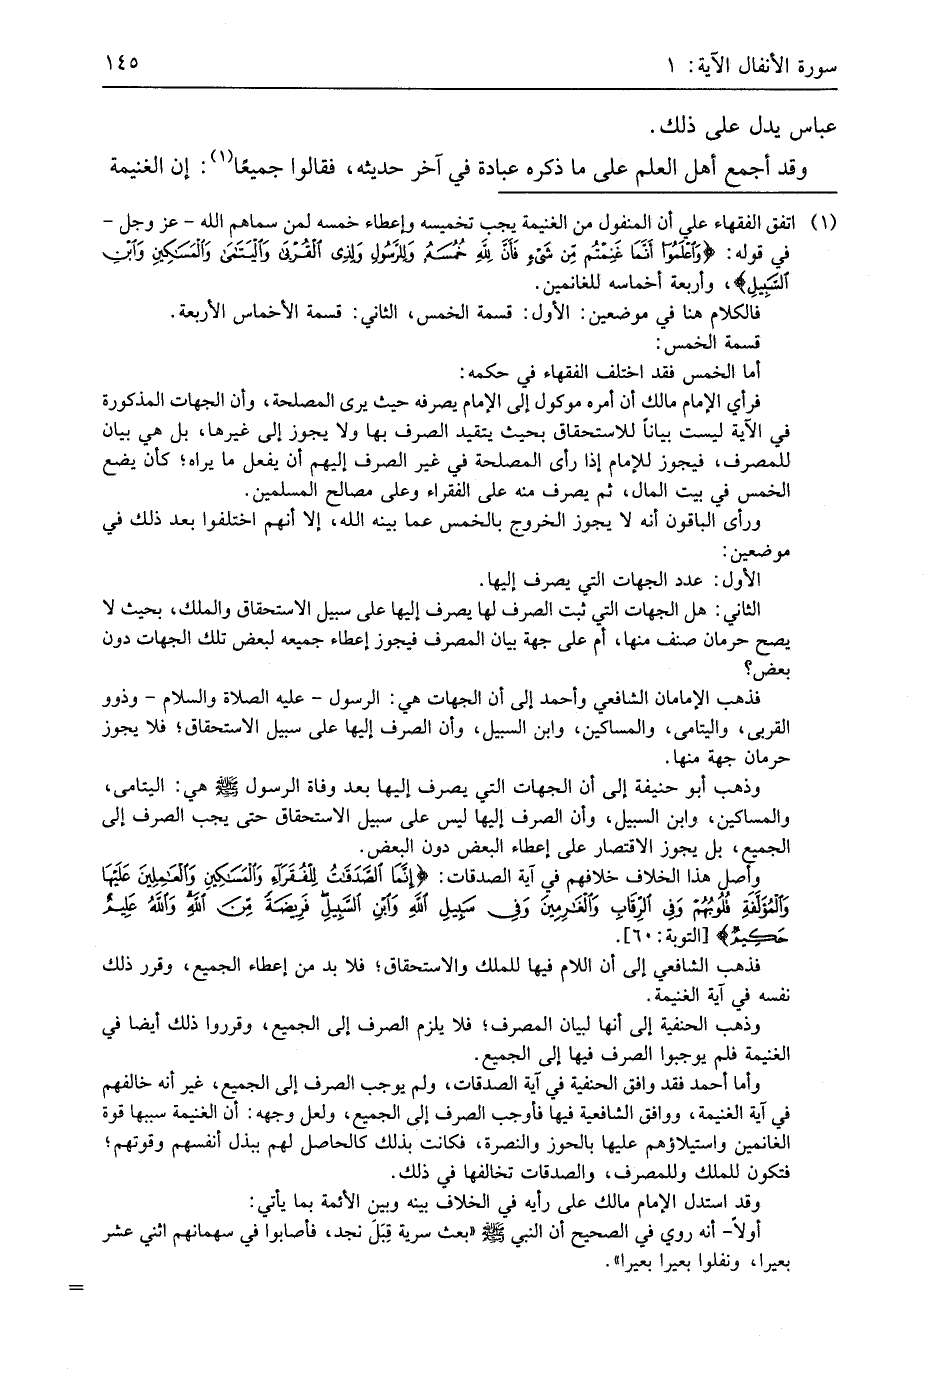 سورة الأنفال الآية: ١
١٤٥
عباس يدل على ذلك.
وقد أجمع أهل العلم على ما ذكره عبادة في آخر حديثه، فقالوا جميعًا(١): إن الغنيمة
(١) اتفق الفقهاء على أن المنقول من الغنيمة يجب تخميسه وإعطاء خمسه لمن سماهم الله – عز وجل –
في قوله: ﴿وَٱعْلَمُوٓا۟ أَنَّمَا غَنِمْتُم مِّن شَىْءٍ فَأَنَّ لِلَّهِ خُمُسَهُۥ وَلِلرَّسُولِ وَلِذِى ٱلْقُرْبَىٰ وَٱلْيَتَـٰمَىٰ وَٱلْمَسَـٰكِينِ وَٱبْنِ
ٱلسَّبِيلِ﴾، وأربعة أخماسه للغانمين.
فالكلام هنا في موضعين: الأول: قسمة الخمس، الثاني: قسمة الأخماس الأربعة.
قسمة الخمس:
أما الخمس فقد اختلف الفقهاء في حكمه:
فرأي الإمام مالك أن أمره موكول إلى الإمام يصرفه حيث يرى المصلحة، وأن الجهات المذكورة
في الآية ليست بياناً للاستحقاق بحيث يتقيد الصرف بها ولا يجوز إلى غيرها، بل هي بيان
للمصرف، فيجوز للإمام إذا رأى المصلحة في غير الصرف إليهم أن يفعل ما يراه؛ كأن يضع
الخمس في بيت المال، ثم يصرف منه على الفقراء وعلى مصالح المسلمين.
ورأى الباقون أنه لا يجوز الخروج بالخمس عما بينه الله، إلا أنهم اختلفوا بعد ذلك في
موضعين:
الأول: عدد الجهات التي يصرف إليها.
الثاني: هل الجهات التي ثبت الصرف لها يصرف إليها على سبيل الاستحقاق والملك، بحيث لا
يصح حرمان صنف منها، أم على جهة بيان المصرف فيجوز إعطاء جميعه لبعض تلك الجهات دون
بعض؟
فذهب الإمامان الشافعي وأحمد إلى أن الجهات هي: الرسول – عليه الصلاة والسلام – وذوو
القربى، واليتامى، والمساكين، وابن السبيل، وأن الصرف إليها على سبيل الاستحقاق؛ فلا يجوز
حرمان جهة منها.
وذهب أبو حنيفة إلى أن الجهات التي يصرف إليها بعد وفاة الرسول ﷺ هي: اليتامى،
والمساكين، وابن السبيل، وأن الصرف إليها ليس على سبيل الاستحقاق حتى يجب الصرف إلى
الجميع، بل يجوز الاقتصار على إعطاء البعض دون البعض.
وأصل هذا الخلاف خلافهم في آية الصدقات: ﴿إِنَّمَا ٱلصَّدَقَـٰتُ لِلْفُقَرَآءِ وَٱلْمَسَـٰكِينِ وَٱلْعَـٰمِلِينَ عَلَيْهَا
وَٱلْمُؤَلَّفَةِ قُلُوبُهُمْ وَفِى ٱلرِّقَابِ وَٱلْغَـٰرِمِينَ وَفِى سَبِيلِ ٱللَّهِ وَٱبْنِ ٱلسَّبِيلِ فَرِيضَةً مِّنَ ٱللَّهِ وَٱللَّهُ عَلِيمٌ
حَكِيمٌ﴾ [التوبة: ٦٠].
فذهب الشافعي إلى أن اللام فيها للملك والاستحقاق؛ فلا بد من إعطاء الجميع، وقرر ذلك
نفسه في آية الغنيمة.
وذهب الحنفية إلى أنها لبيان المصرف؛ فلا يلزم الصرف إلى الجميع، وقرروا ذلك أيضا في
الغنيمة فلم يوجبوا الصرف فيها إلى الجميع.
وأما أحمد فقد وافق الحنفية في آية الصدقات، ولم يوجب الصرف إلى الجميع، غير أنه خالفهم
في آية الغنيمة، ووافق الشافعية فيها فأوجب الصرف إلى الجميع، ولعل وجهه: أن الغنيمة سببها قوة
الغانمين واستيلاؤهم عليها بالحوز والنصرة، فكانت بذلك كالحاصل لهم ببذل أنفسهم وقوتهم؛
فتكون للملك وللمصرف، والصدقات تخالفها في ذلك.
وقد استدل الإمام مالك على رأيه في الخلاف بينه وبين الأئمة بما يأتي:
أولاً– أنه روي في الصحيح أن النبي ﷺ «بعث سرية قِبَلَ نجد، فأصابوا في سهمانهم اثني عشر
بعيرا، ونفلوا بعيرا بعيرا».
=